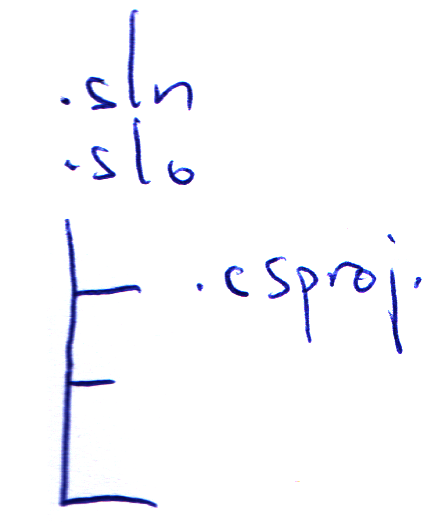 .sln
.slo
.csproj.